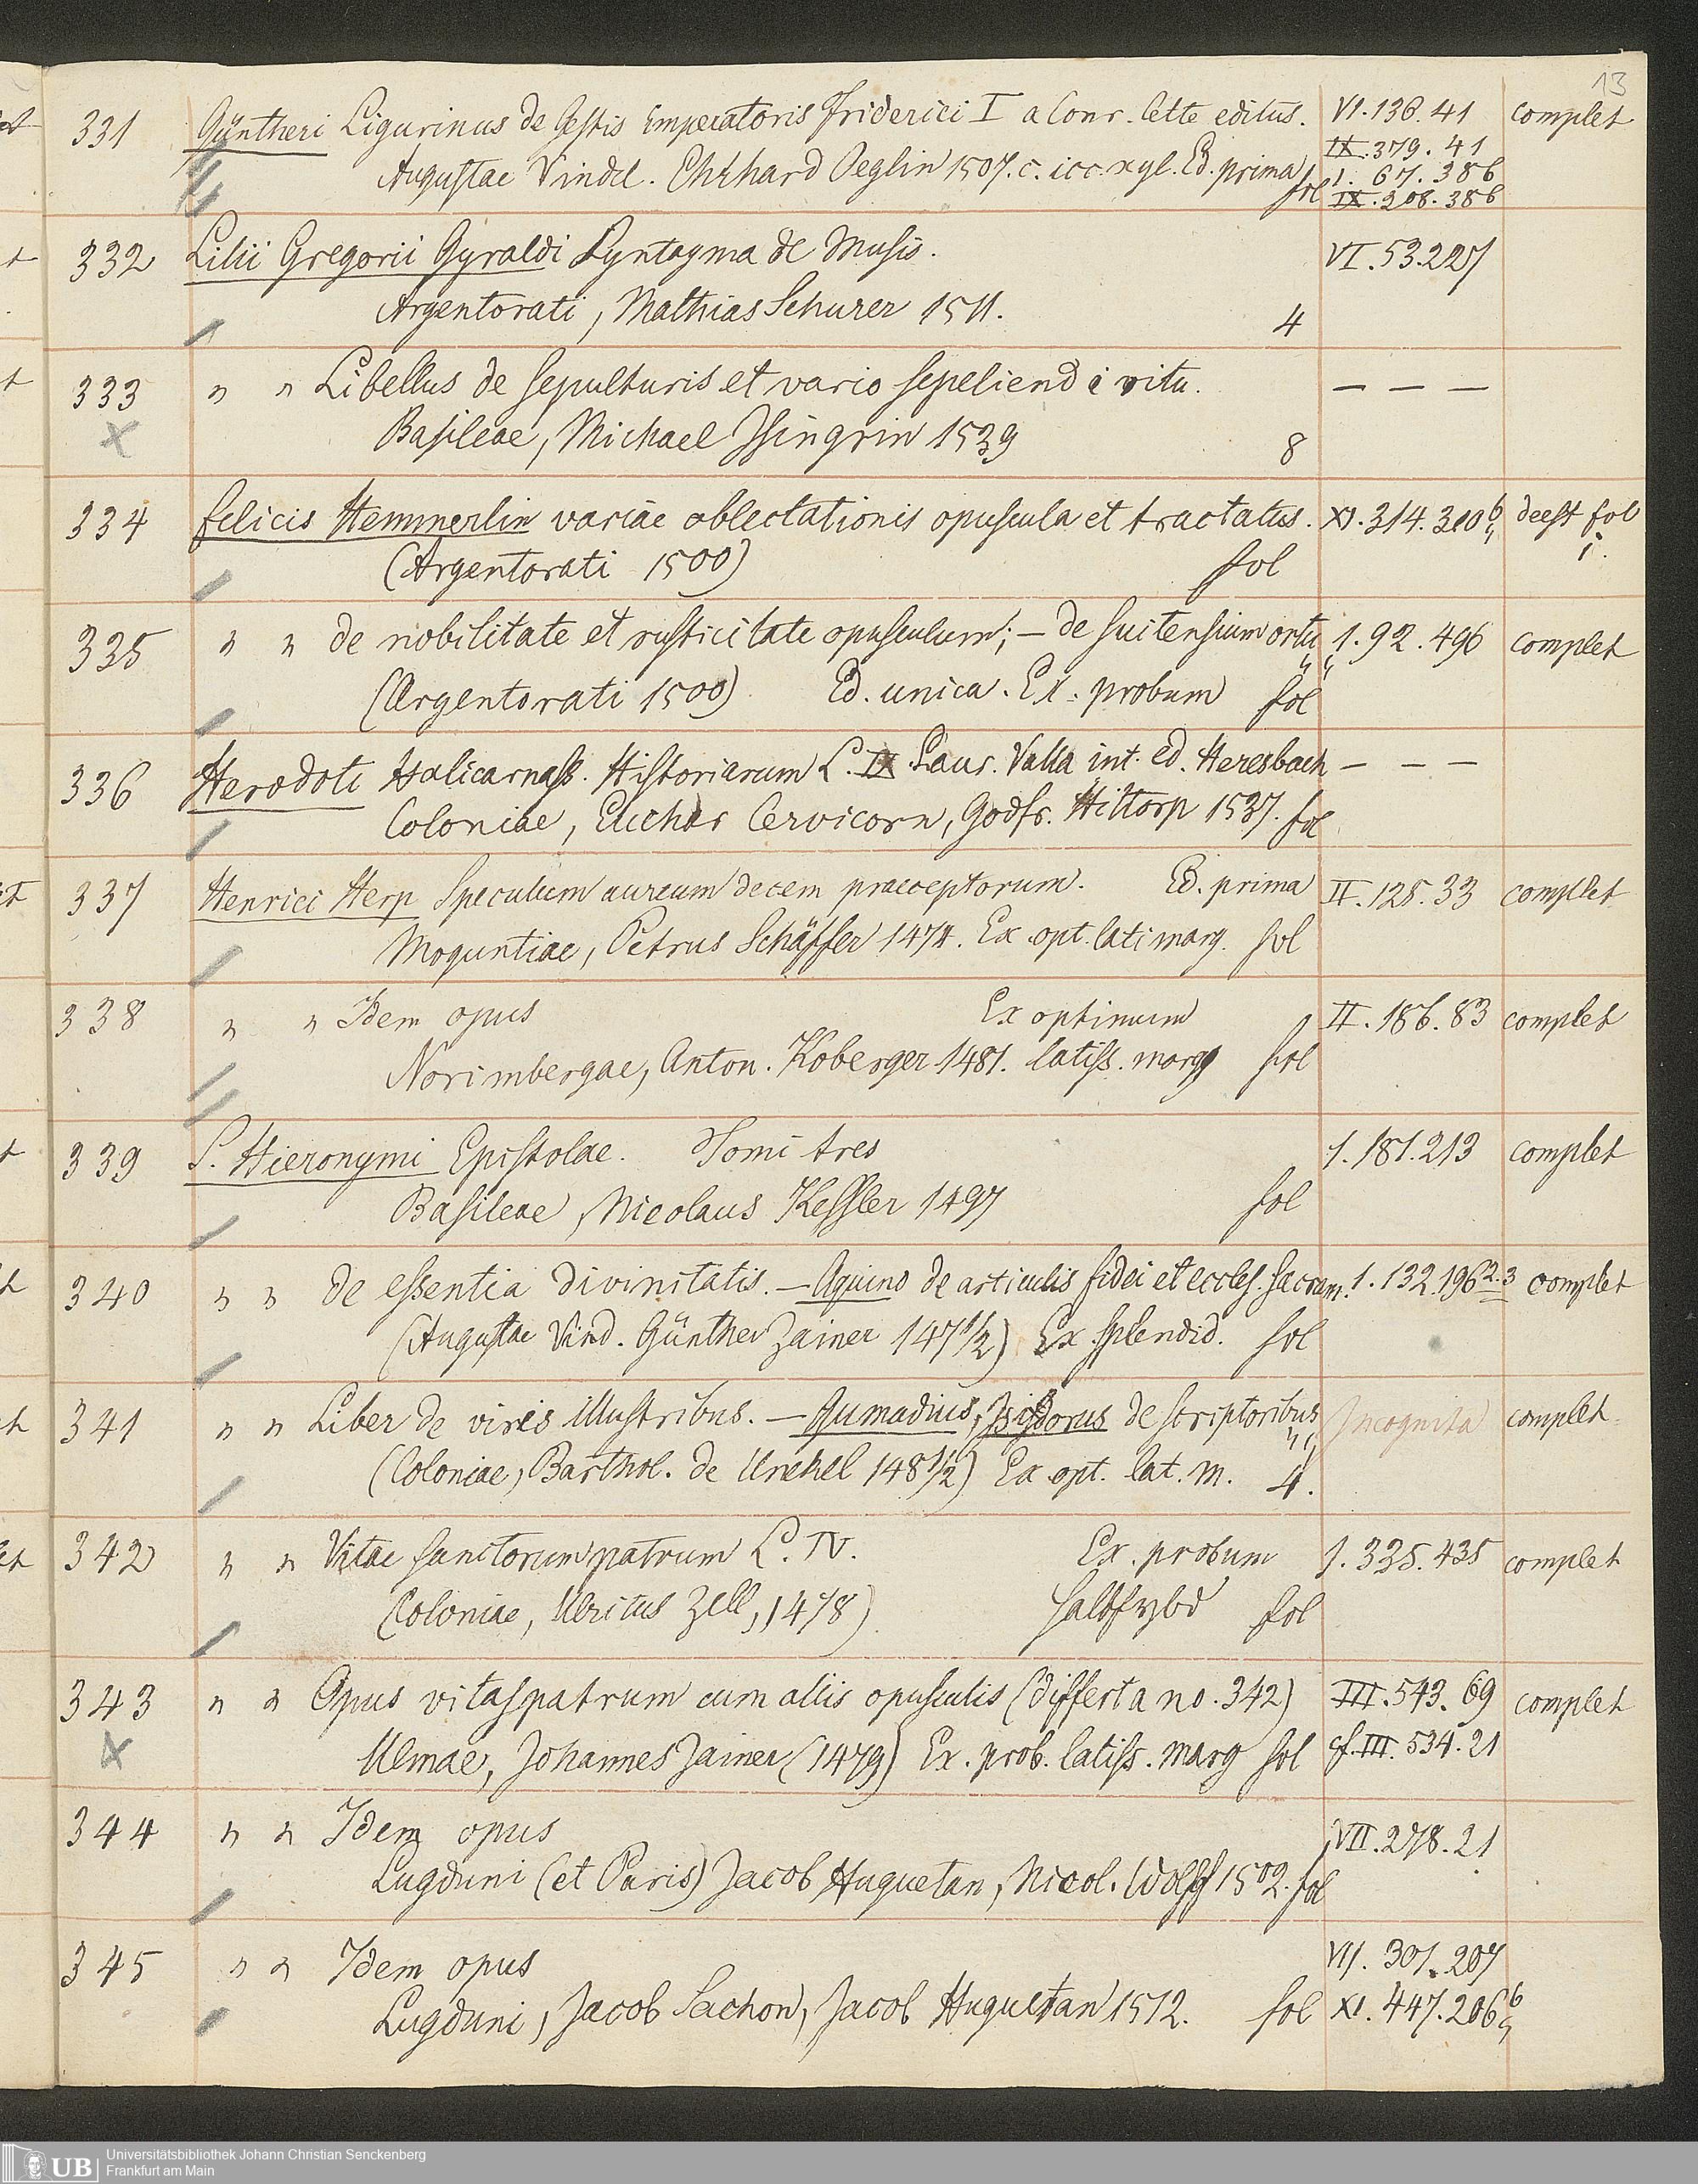 13
331 Güntheri Ligurinus de Gestis Imperatoris Friderici I a Conr. Celte editus. VI.136.41 complet
IX.379.41
Augustae Vindel. Ehrhard Oeglin 1507. c. icc. xyl. Ed. prima fol 1. 67. 386
IX.208.386
332 Lilii Gregorii Gyraldi Syntagma de Musis. VI.53.227
Argentorati, Mathias Schurer 1511. 4
333 " " Libellus de sepulturis et vario sepeliendi ritu. — — —
Basileae, Michael Isingrin 1539 8
334 Felicis Hemmerlin variae oblectationis opuscula et tractatus. XI.314.310 b deest fol
(Argentorati 1500) fol i.
335 " " de nobilitate et rusticitate opusculum; — de Suitensium ortu 1.92.496 complet
(Argentorati 1500) Ed. unica. Ex. probum fol
336 Herodoti Halicarnass. Historiarum L. IX Laur. Valla int. ed. Heresbach — — —
Coloniae, Euchar Cervicorn, Godfr. Hittorp 1537. fol
337 Henrici Herp Speculum aureum decem praeceptorum. Ed. prima II.125.33 complet
Moguntiae, Petrus Schäffer 1474. Ex. opt. lati marg. fol
338 " " Idem opus Ex optimum II.186.83 complet
Norimbergae, Anton. Koberger 1481. latiss. marg fol
339 S. Hieronymi Epistolae. Tomi tres 1.181.213 complet
Basileae, Nicolaus Kessler 1497 fol
340 " " de essentia divinitatis. — Aquino de articulis fidei et eccles. sacram. 1.132.196 2.3 complet
(Augustae Vind. Günther Zainer 147 1/2) Ex. splendid. fol
341 " " Liber de viris illustribus. — Isidorus de scriptoribus Incognita complet
(Coloniae, Barthol. de Unckel 148 1/2) Ex opt. lat. m. 4.
342 " " Vitae sanctorum patrum L. IV. Ex. probum 1.335.435 complet
(Coloniae, Ulricus Zell, 1478) halbfrzbd fol
343 " " Opus vitaspatrum cum aliis opusculis (differt a no. 342) III.543.69 complet
Ulmae, Johannes Zainer (1479) Ex. prob. latiss. marg fol cf. III.534.21
344 " " Idem opus VII.278.21
Lugduni (et Paris) Jacob Huguetan, Nicol. Wolff 1502. fol
345 " " Idem opus VII.307.207
Lugduni, Jacob Sachon, Jacob Huguetan 1512. fol XI.447.206 b
UB Universitätsbibliothek Johann Christian Senckenberg
Frankfurt am Main